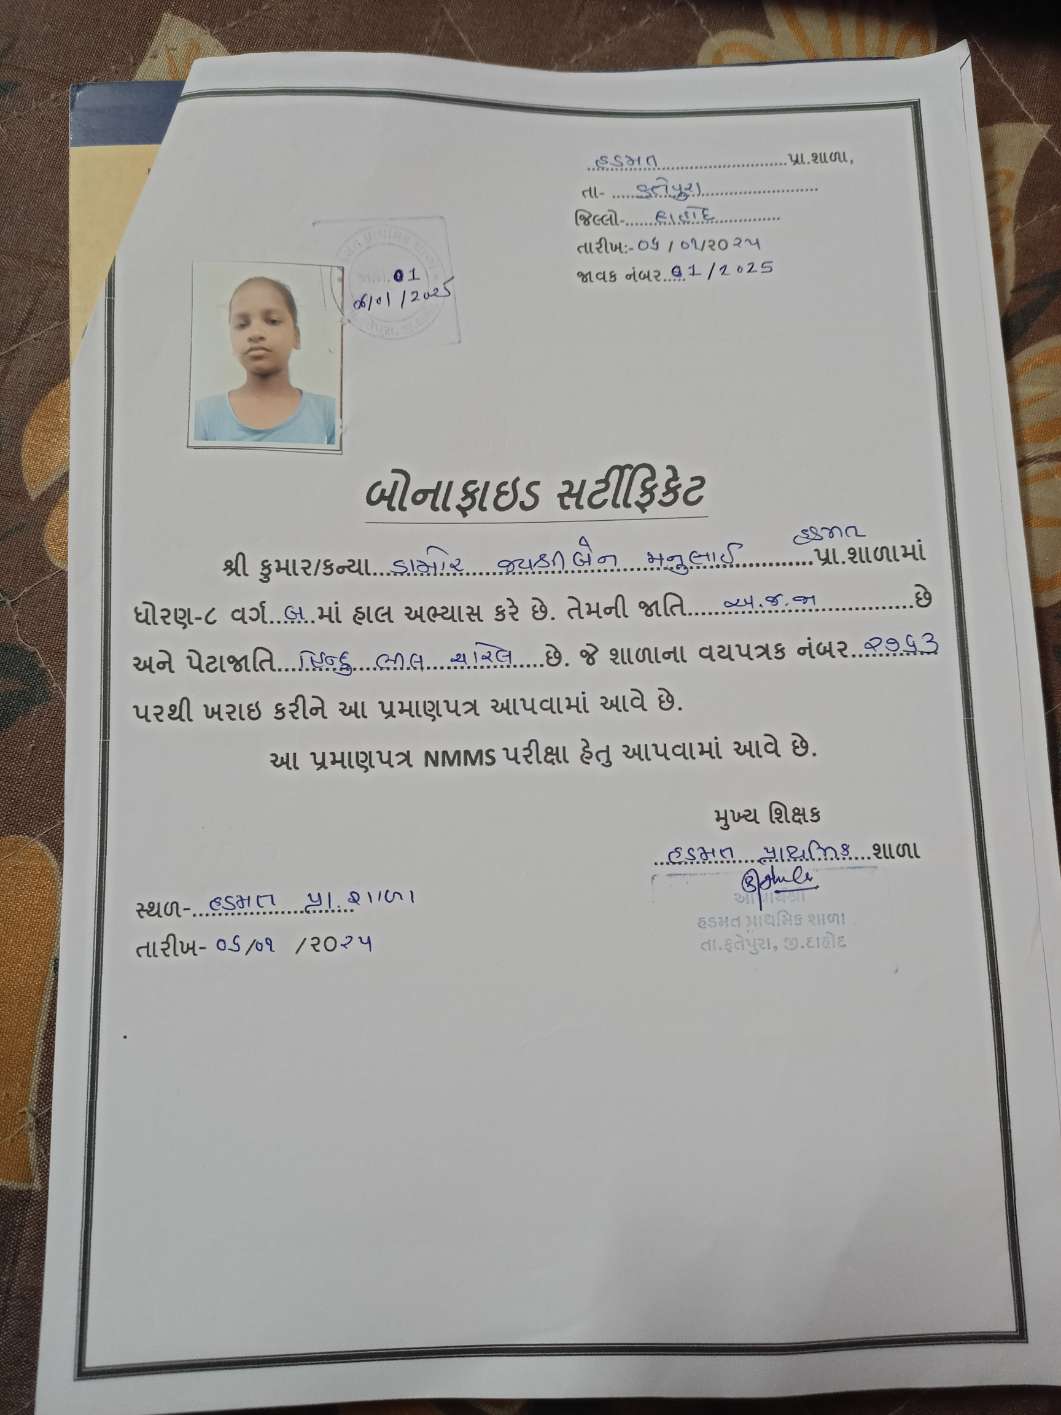 હડમત પ્રા.શાળા,
તા- ફતેપુરા
જિલ્લો- દાહોદ
તારીખ:- ૦૬ / ૦૧/૨૦૨૫
જાવક નંબર 01 / 2025
01
06/01 / 2025
બોનાફાઇડ સર્ટીફિકેટ
હડમત
શ્રી કુમાર/કન્યા ડામોર મનુભાઈ પ્રા.શાળામાં
ધોરણ-૮ વર્ગ બ માં હાલ અભ્યાસ કરે છે. તેમની જાતિ અ.જ.જા છે
અને પેટાજાતિ હિન્દુ ભીલ છે. જે શાળાના વયપત્રક નંબર ૨૭૬૩
પરથી ખરાઇ કરીને આ પ્રમાણપત્ર આપવામાં આવે છે.
આ પ્રમાણપત્ર NMMS પરીક્ષા હેતુ આપવામાં આવે છે.
મુખ્ય શિક્ષક
હડમત પ્રાથમિક શાળા
આચાર્યશ્રી
હડમત પ્રાથમિક શાળા
તા.ફતેપુરા, જી.દાહોદ
સ્થળ- હડમત પ્રા. શાળા
તારીખ- ૦૬ /૦૧ /૨૦૨૫